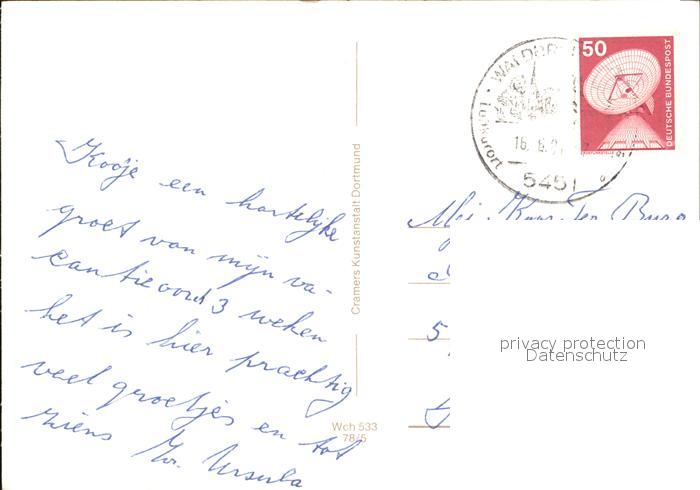 Kooje een hartelijke
groet van mijn va-
cantieoord 3 weken
het is hier prachtig
veel groetjes en tot
ziens Zr. Ursula
Cramers Kunstanstalt Dortmund
Wch 533
78/5
WALDBR
Luftkurort
16.8.
5451
50
DEUTSCHE BUNDESPOST
Mej. Ter Burg
5
privacy protection
Datenschutz